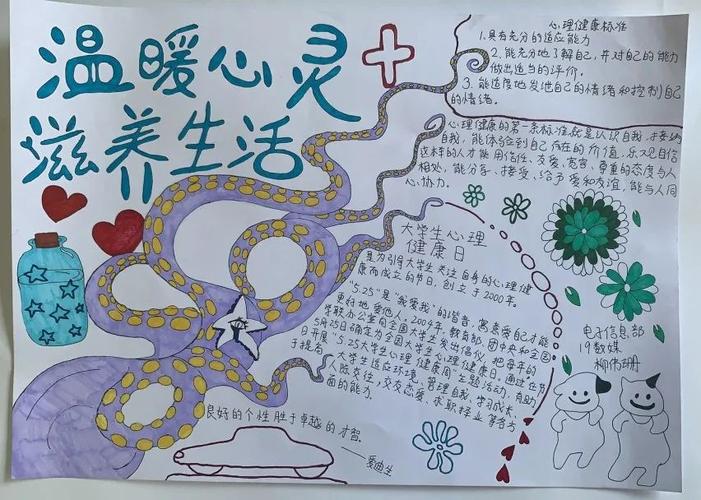 温暖心灵
滋养生活
心理健康标准
1.具有充分的适应能力
2.能充分地了解自己,并对自己的能力
做出适当的评价。
3.能适度地发泄自己的情绪和控制自己
的情绪。
心理健康的第一条标准就是认识自我,接纳
自我,能体验到自己存在的价值,乐观自信
这样的人才能用信任、友爱、宽容、尊重的态度与人
相处,能分享、接受、给予爱和友谊,能与人同
心协力。
大学生心理
健康日
是为引导大学生关注自身的心理健
康而成立的节日,创立于2000年。
"5.25"是"我爱我"的谐音,寓意爱自己才能
更好地爱他人。2004年,教育部、团中央和全国
学联办公室向全国大学生发出倡仪,把每年的
5月25日确定为全国大学生心理健康日。通过在节
日开展"5.25大学生心理健康周"主题活动,有助
于提高大学生适应环境、管理自我、学习成长、
人际交往,交友恋爱、求职择业等各方
面的能力。
良好的个性胜于卓越的才智。
——爱迪生
电子信息部
19数媒
柳伟珊